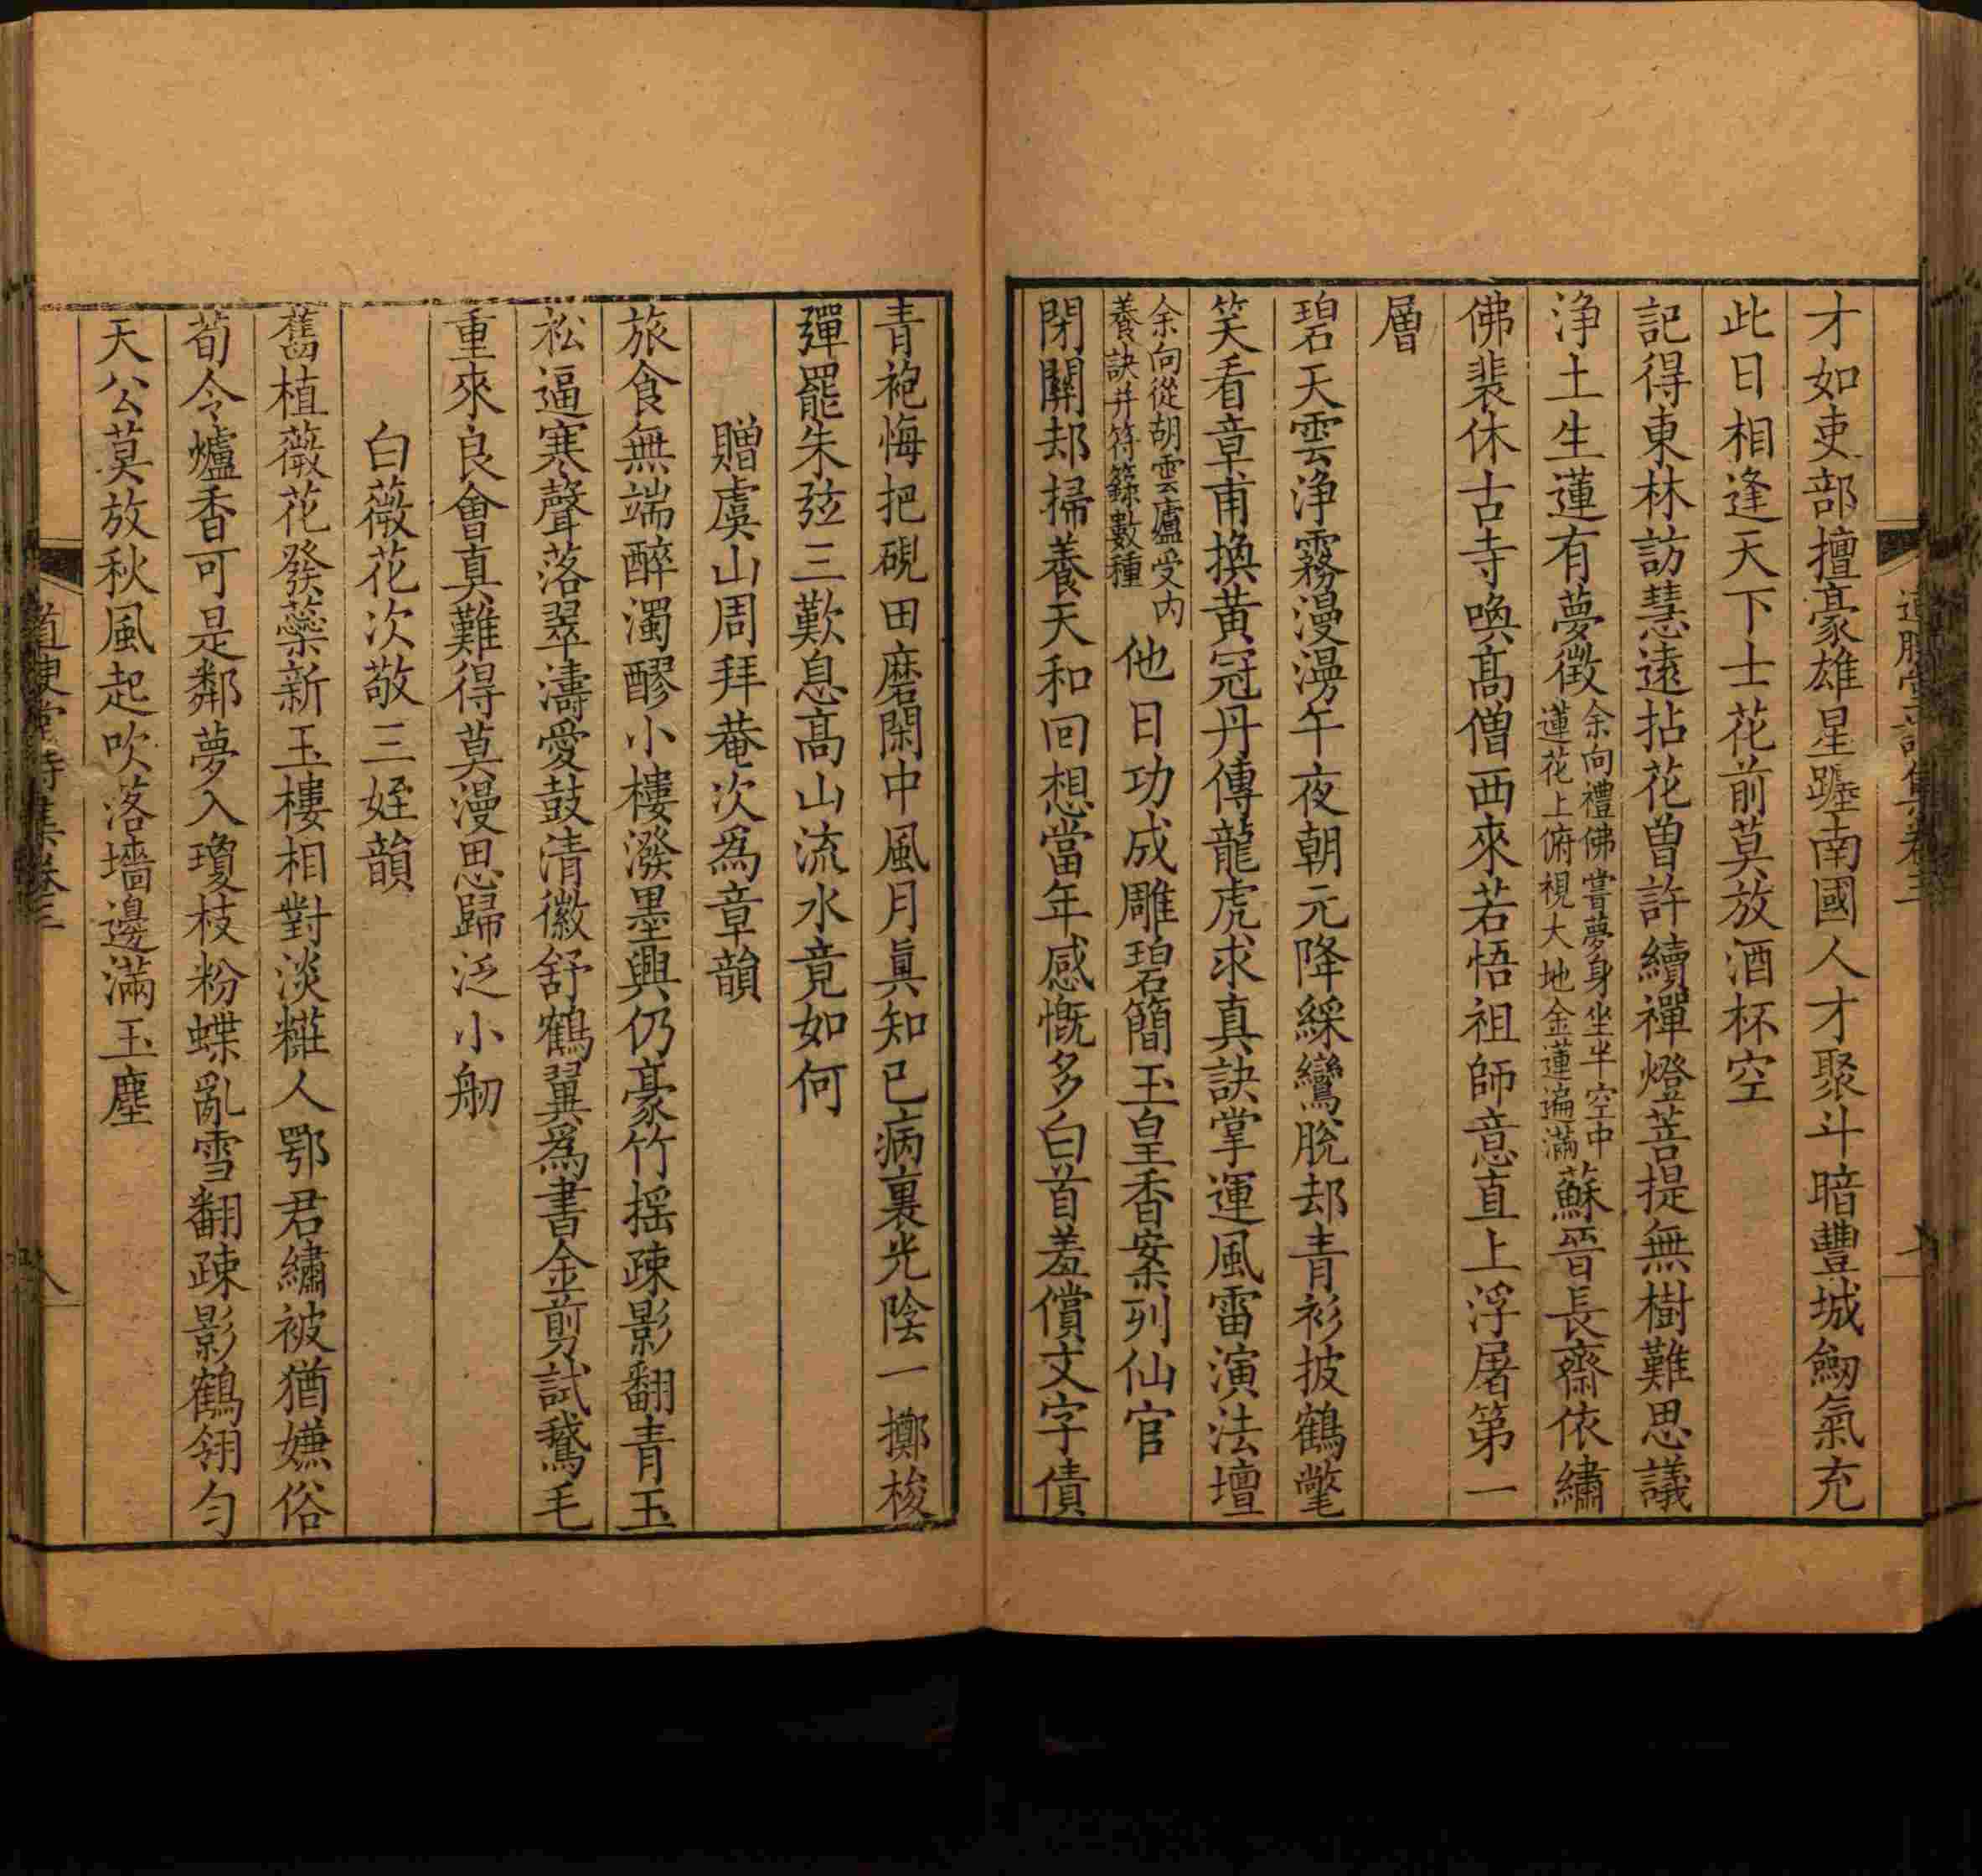 才如吏部擅豪雄星躔南國人才聚斗暗豐城劒氣充
此日相逢天下士花前莫放酒杯空
記得東林訪慧遠拈花曽許續禪燈菩提無樹難思議
淨土生蓮有夢徴余向禮佛嘗夢身坐半空中蓮花上俯視大地金蓮遍滿蘇晉長齋依繡
佛裴休古寺喚髙僧西來若悟祖師意直上浮屠第一
層
碧天雲淨霧漫漫午夜朝元降綵鸞脫却青衫披鶴氅
笑看章甫換黃冠丹傳龍虎求真訣掌運風雷演法壇
余向從胡雲廬受内養訣并符籙數種他日功成雕碧簡玉皇香案列仙官
閉關却掃養天和回想當年感慨多白首羞償文字債
青袍悔把硯田磨閑中風月眞知已病裏光陰一擲梭
彈罷朱弦三歎息髙山流水竟如何
贈虞山周拜菴次爲章韻
旅食無端醉濁醪小樓潑墨興仍豪竹摇疎影翻青玉
松逼寒聲落翠濤愛鼓清徽舒鶴翼爲書金剪試鵞毛
重來良會真難得莫漫思歸泛小舠
白薇花次敬三姪韻
舊植薇花發蘂新玉樓相對淡糚人鄂君繡被猶嫌俗
荀令爐香可是鄰夢入瓊枝粉蝶亂雪翻疎影鶴翎匀
天公莫放秋風起吹落墻邊滿玉塵